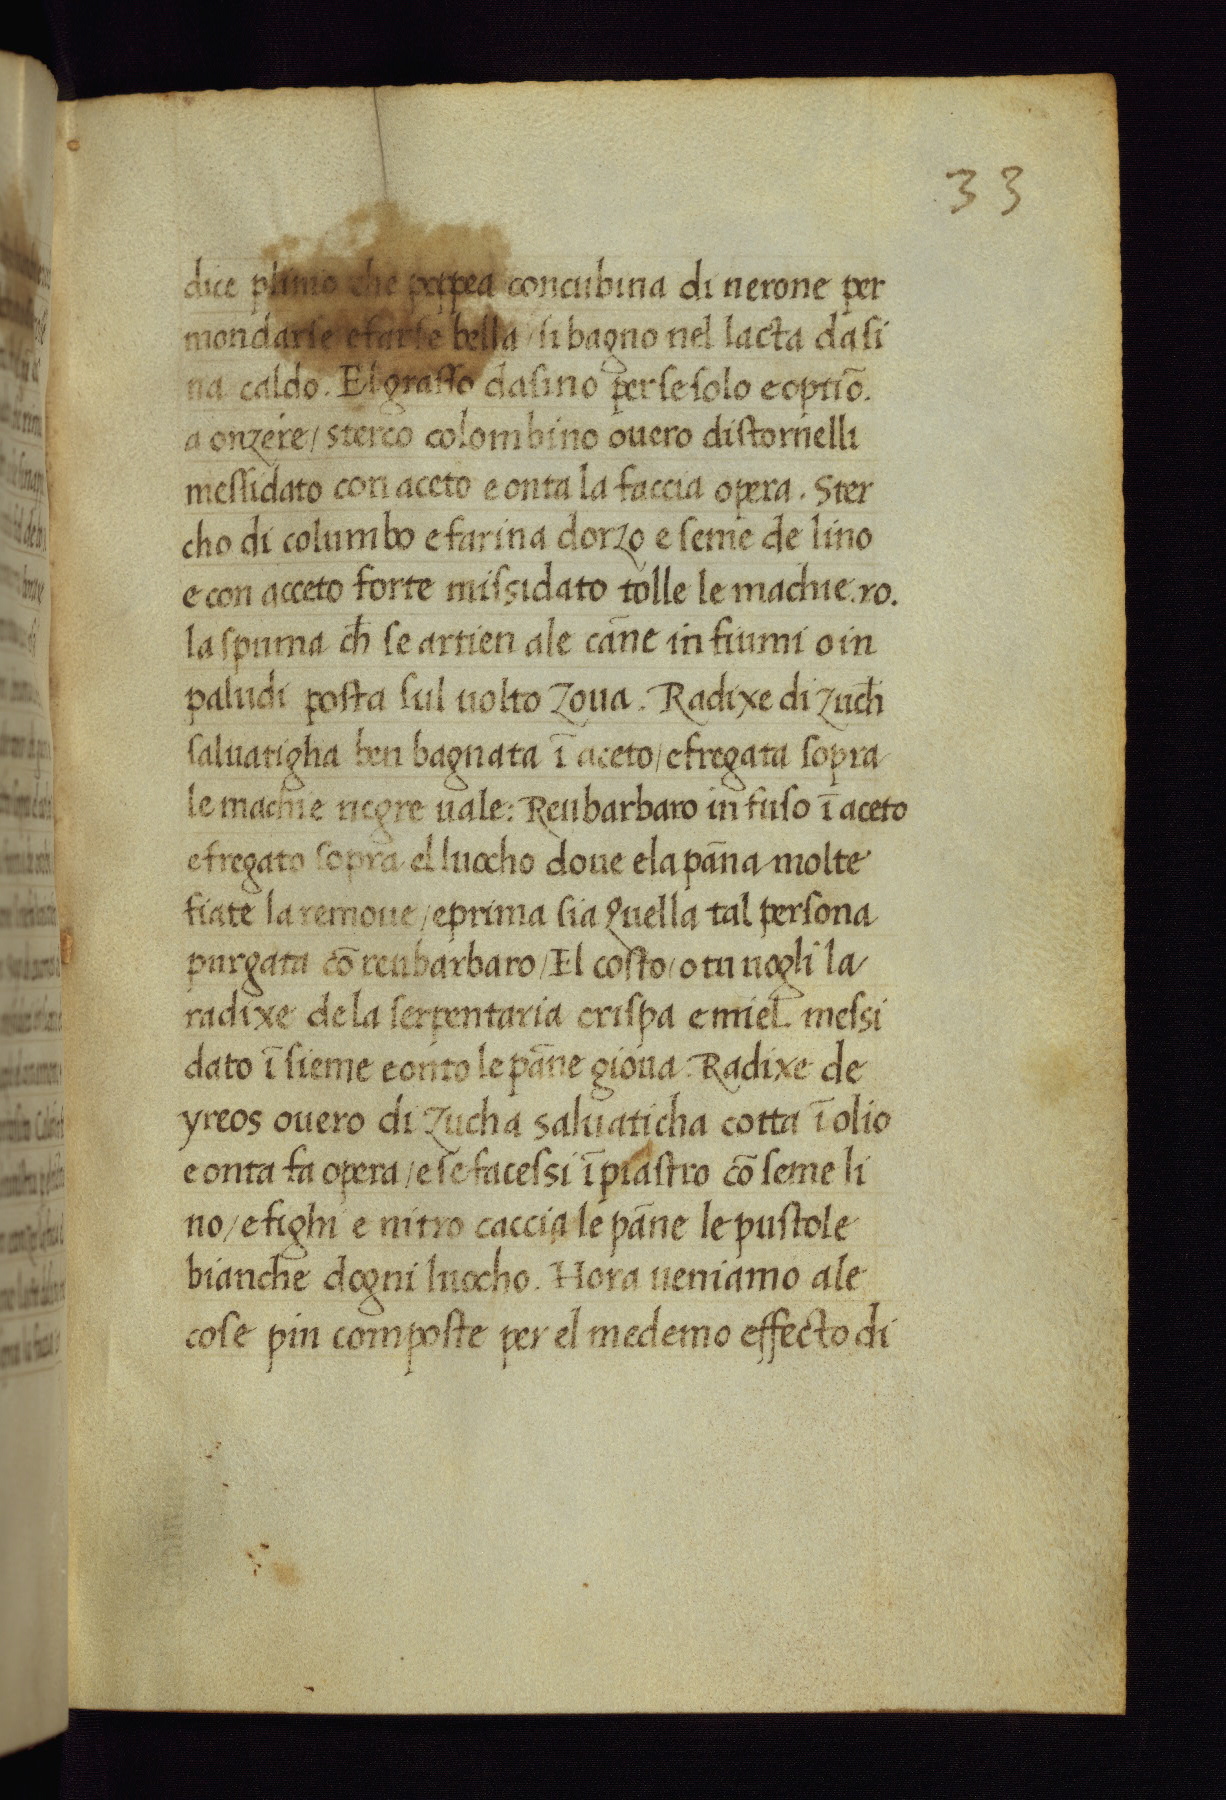 33
dice plinio che poppea concubina di nerone per
mondarse e farse bella / si bagno nel lacta dasi
na caldo. El grasso dasino per se solo e optīo.
a onzere / sterco colombino ouero distornelli
messidato con aceto e onta la faccia opera. Ster
cho di columbo e farina dorzo e seme de lino
e con acceto forte missidato tolle le machie.ro.
la spuma ch̄ se artien ale cāne in fiumi o in
paludi posta sul uolto zoua. Radixe di zuch̄
saluatigha ben bagnata ī aceto / e fregata sopra
le machie negre uale: Reubarbaro infuso ī aceto
e fregato sopra el luocho doue e la pāna molte
fiate la remoue / e prima sia Quella tal persona
purgata cō reubarbaro / El costo / o tu uogli la
radixe de la serpentaria crispa e miel messi
dato ī sieme e onto le pāne gioua. Radixe de
yreos ouero di zucha saluaticha cotta ī olio
e onta fa opera / e se facessi īpiastro cō seme li
no / e fighi e nitro caccia le pāne le pustole
bianche dogni luocho. Hora ueniamo ale
cose piu composte per el medemo effecto di